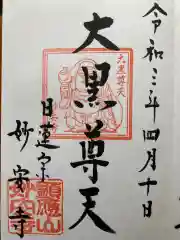 令和三年四月十日
大黒尊天
大黒尊天
日蓮宗
妙安寺